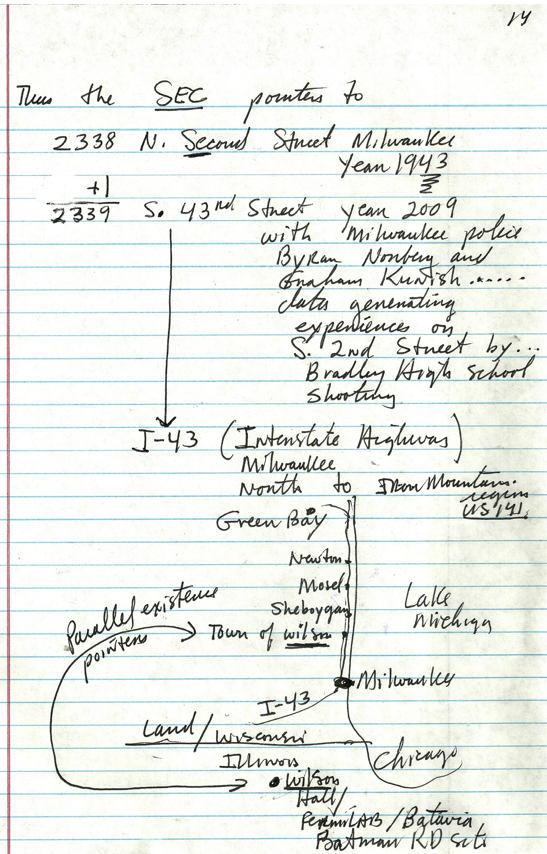 14
Thus the SEC pointers to
2338 N. Second Street Milwaukee
Year 1943
+1
2339 S. 43rd Street year 2009
with Milwaukee police
Byran Norberg and
Graham Kunish ......
dates generating
experiences on
S. 2nd Street by...
Bradley High school
shooting
I-43 (Interstate Highways)
Milwaukee
North to Iron Mountain.
region
US 141
Green Bay
Newton
Mosel
Sheboygan
Lake
Michigan
Parallel existence
pointers
Town of Wilson
Milwaukee
I-43
Land/Wisconsin
Illinois
Chicago
Wilson
Hall/
FermiLAB/Batavia
Batman RD site